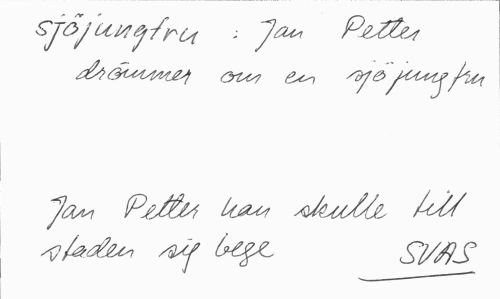 sjöjungfru : Jan Petter
drömmer om en sjöjungfru
Jan Petter han skulle till
staden sig bege
SVAS